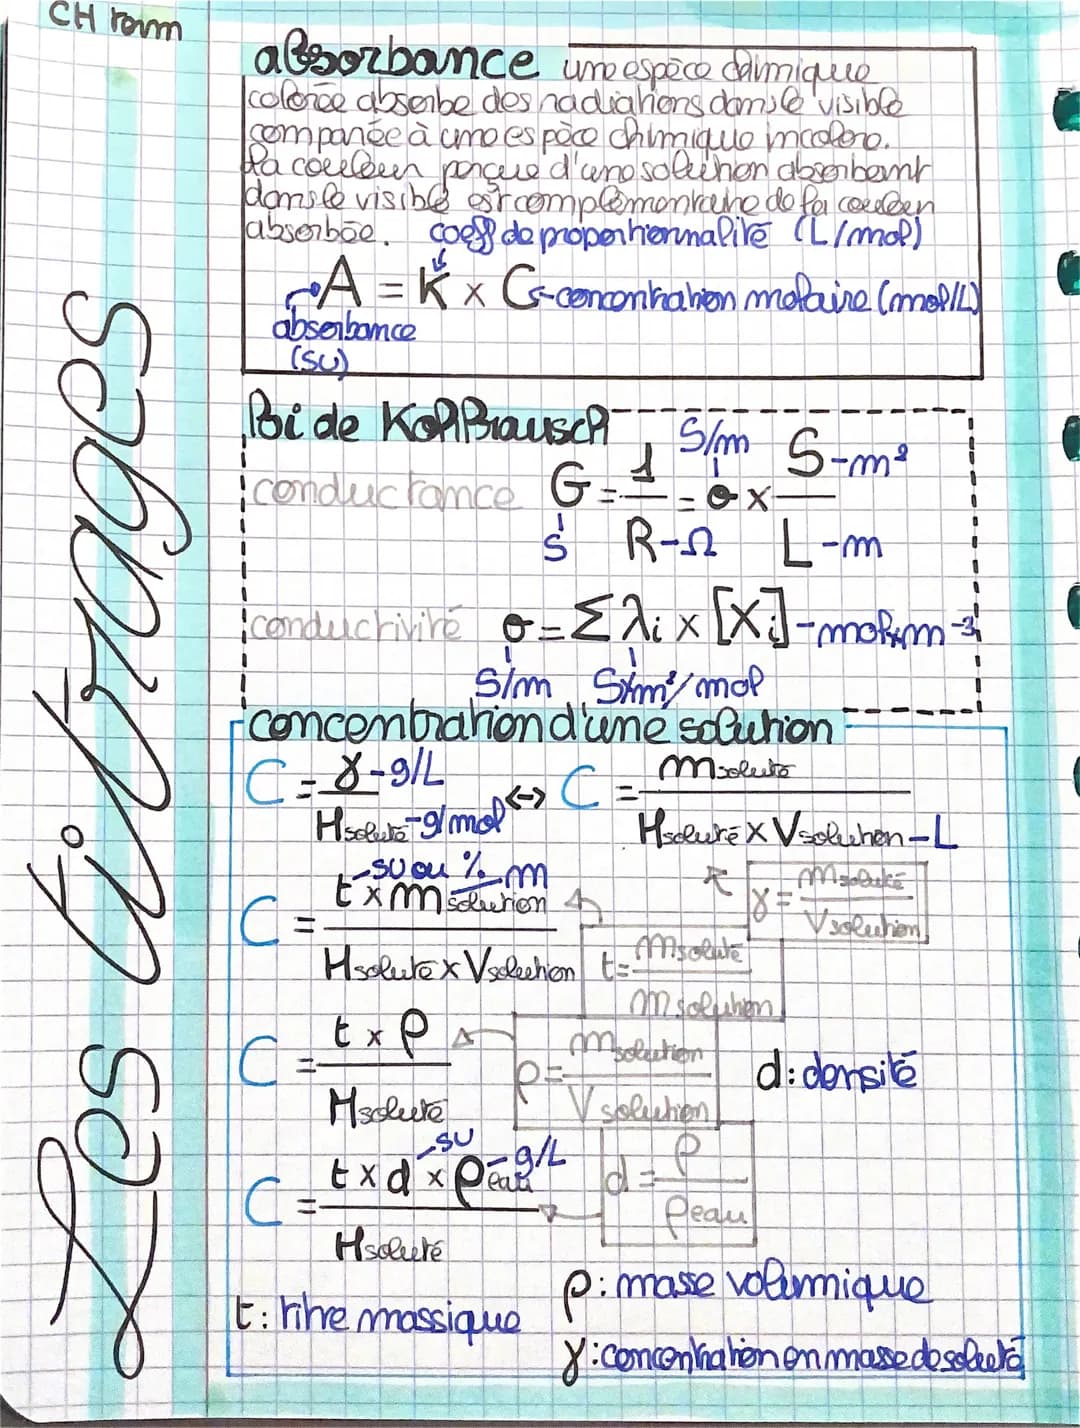 Les titrages
absorbance une espèce chimique
colorée absorbe des radiations dans le visible
comparée à une espèce chimique incolore.
La couleur perçue d'une solution absorbant
dans le visible est complémentaire de la couleur
absorbée. coeff de proportionnalité (L/mol)
A = K × C concentration molaire (mol/L)
absorbance
(SU)
Loi de Kohlrausch
conductance G = 1/R = σ × S/L
S/m
m²
S
Ω
m
conductivité σ = Σ λi × [Xi] - mol×m⁻³
S/m S×m²/mol
concentration d'une solution
C = γ - g/L / Msoluté - g/mol <-> C = msoluté / Msoluté × Vsolution - L
γ = msoluté / Vsolution
- SU ou % m
C = t × msolution / Msoluté × Vsolution
t = msoluté / msolution
C = t × ρ / Msoluté
ρ = msolution / Vsolution
d : densité
C = t × d - SU × ρeau - g/L / Msoluté
d = ρ / ρeau
ρ : masse volumique
t : titre massique
γ : concentration en masse de soluté